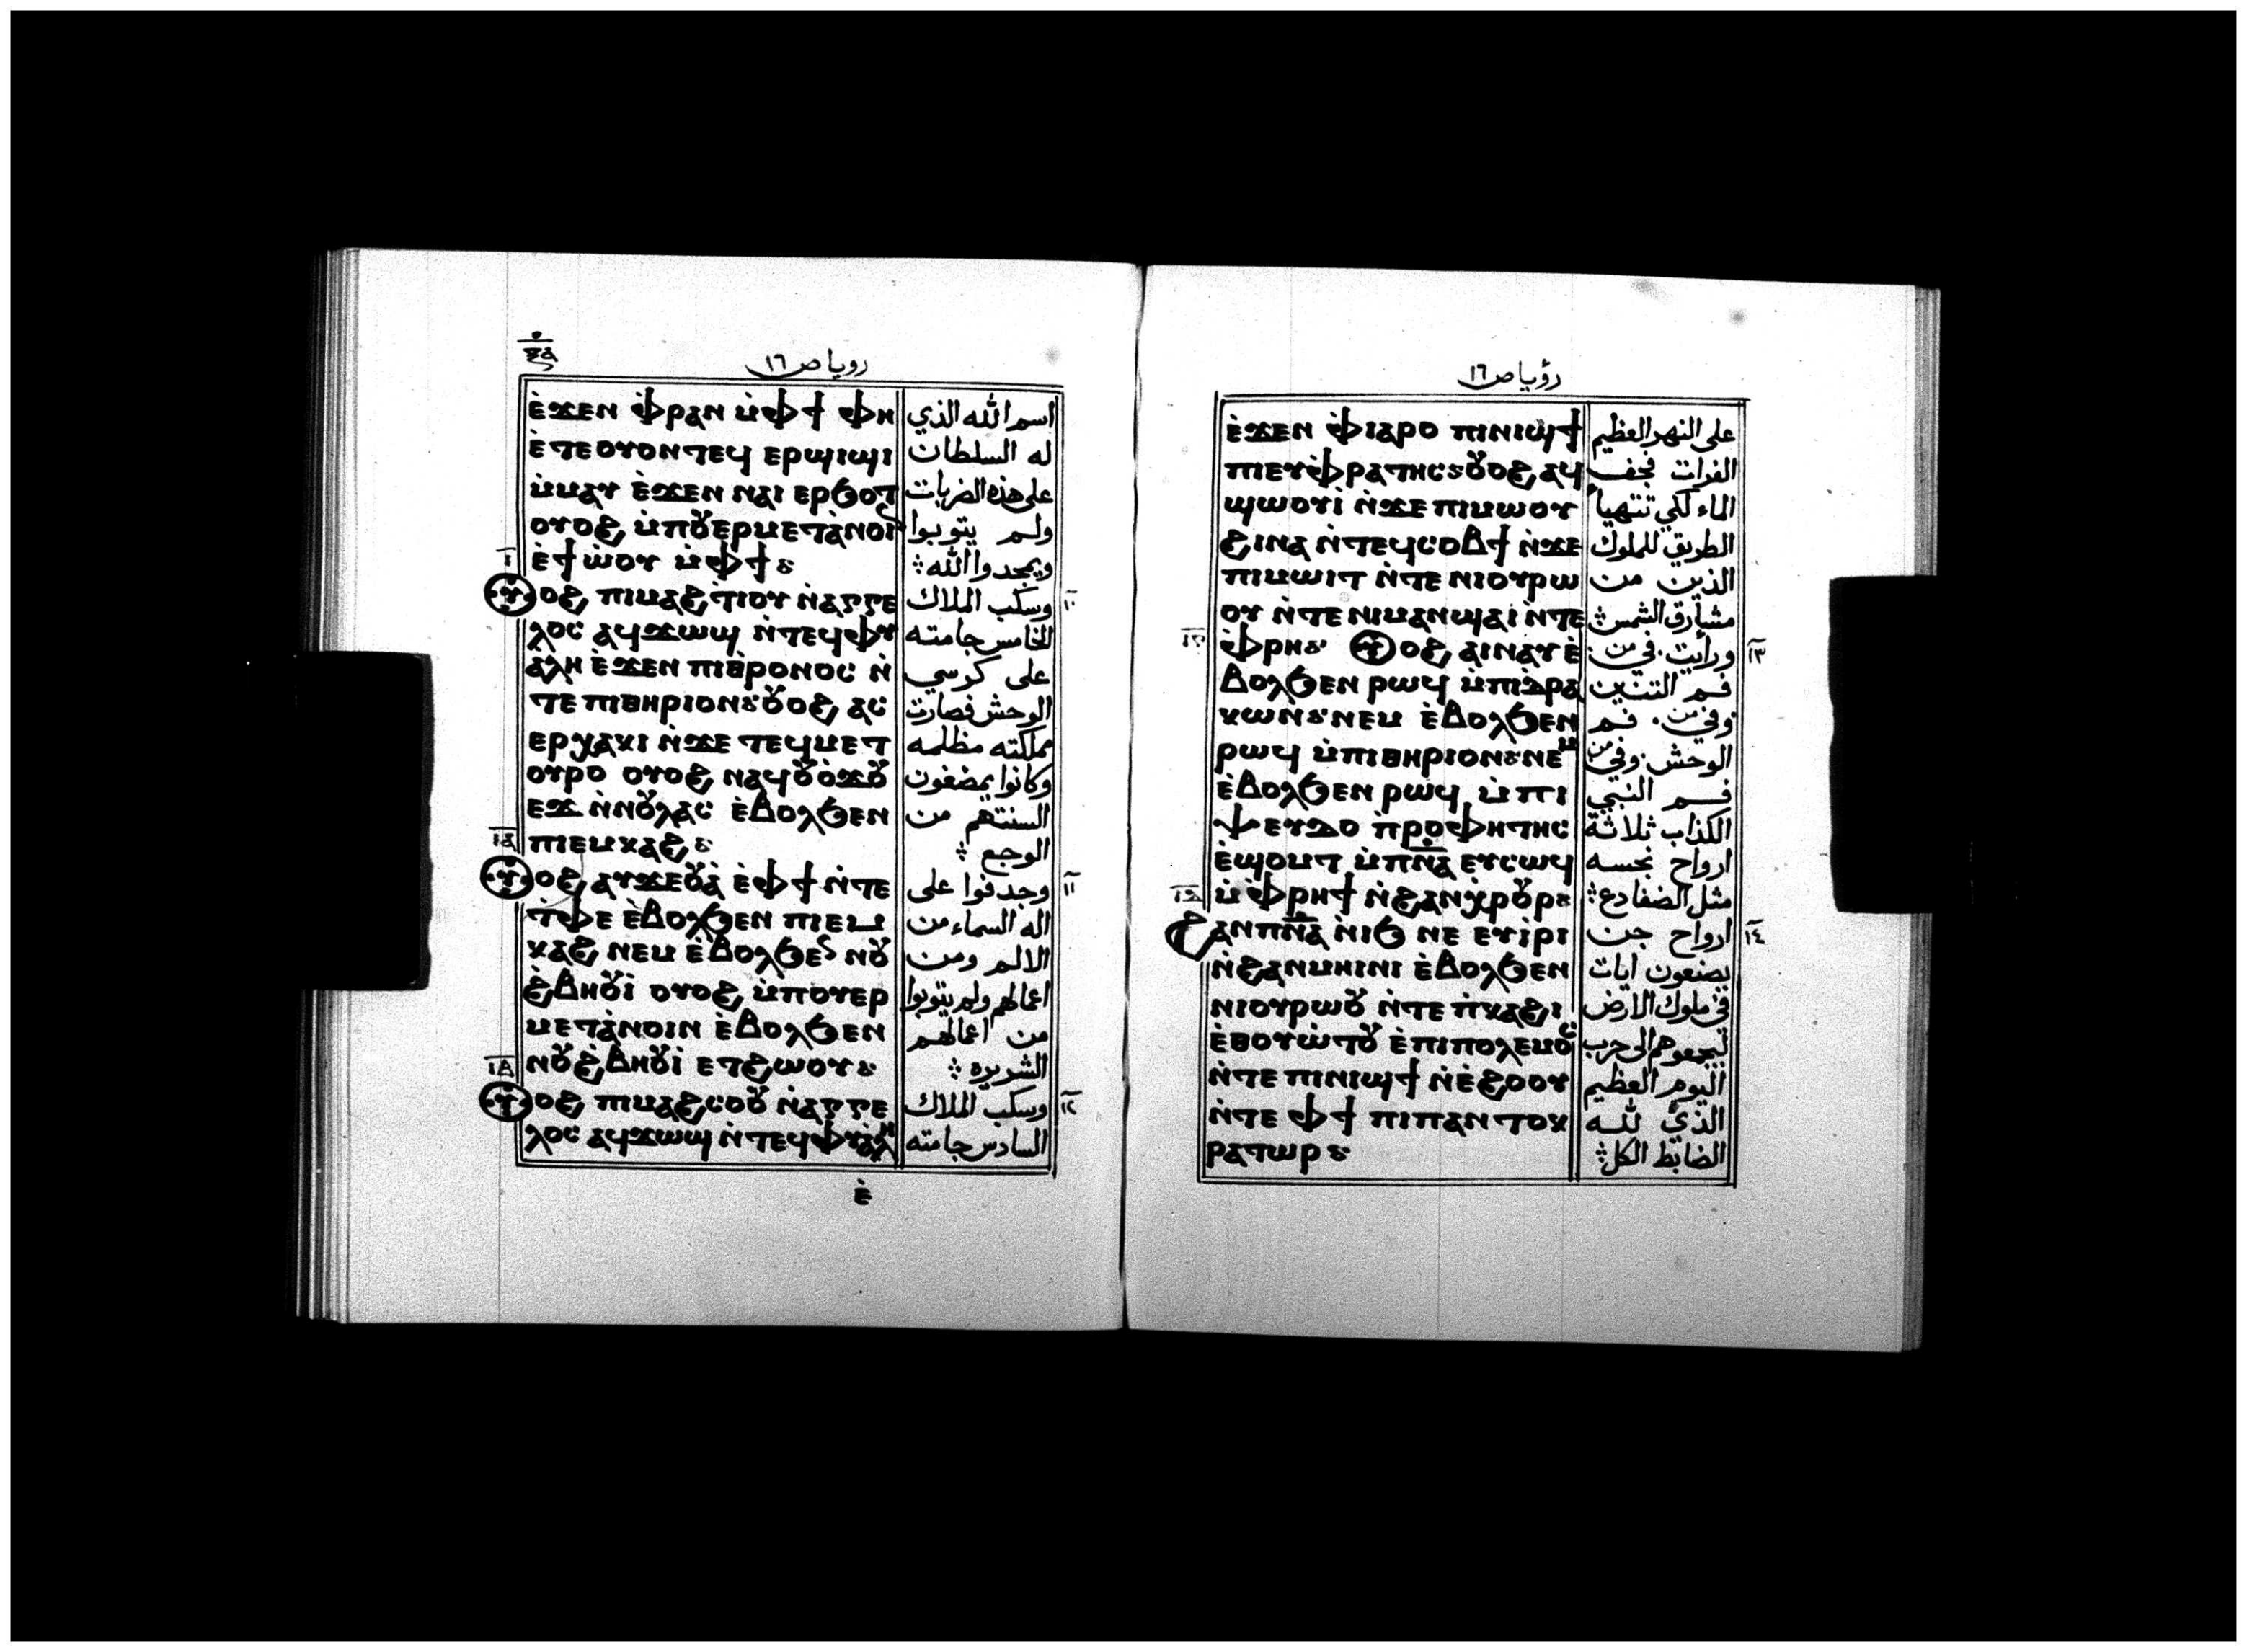 رويا ص ١٦
ⲉ̀ϫⲉⲛ ⲫ̀ⲣⲁⲛ ⲙ̀ⲫϯ ⲫⲏ
ⲉ̀ⲧⲉⲟⲩⲟⲛⲧⲉϥ ⲉⲣϣⲓϣⲓ
ⲙ̀ⲙⲁⲩ ⲉ̀ϫⲉⲛ ⲛⲁⲓ ⲉⲣϧⲟⲧ
ⲟⲩⲟϩ ⲙ̀ⲡⲟⲩⲉⲣⲙⲉⲧⲁ̀ⲛⲟⲓ
ⲉ̀ϯ ⲱ̀ⲟⲩ ⲙ̀ⲫϯ
ⲓ̅
ⲟⲩⲟϩ ⲡⲓⲙⲁϩⲧ̀ⲓⲟⲩ ⲛ̀ⲁⲅⲅⲉ
ⲗⲟⲥ ⲁϥϫⲱϣ ⲛ̀ⲧⲉϥⲫⲩ
ⲁⲗⲏ ⲉ̀ϫⲉⲛ ⲡⲓⲑⲣⲟⲛⲟⲥ ⲛ̀
ⲧⲉ ⲡⲓⲑⲏⲣⲓⲟⲛ ⲟⲩⲟϩ ⲁⲥ
ⲉⲣⲭⲁⲕⲓ ⲛ̀ϫⲉ ⲧⲉϥⲙⲉⲧ
ⲟⲩⲣⲟ ⲟⲩⲟϩ ⲛⲁϥⲟⲩⲟ̀ϫⲟⲩ
ⲉϫ ⲛ̀ⲛⲟⲩⲗⲁⲥ ⲉ̀ⲃⲟⲗϧⲉⲛ
ⲡⲓⲉⲙⲕⲁϩ
ⲓ̅ⲁ̅
ⲟⲩⲟϩ ⲁⲩϫⲉⲟⲩⲁ̀ ⲉ̀ⲫϯ ⲛ̀ⲧⲉ
ⲧ̀ⲫⲉ ⲉ̀ⲃⲟⲗϧⲉⲛ ⲡⲓⲉⲙ
ⲕⲁϩ ⲛⲉⲙ ⲉ̀ⲃⲟⲗϧⲉⲛ ⲛⲟⲩ
ϩ̀ⲃⲏⲟⲩⲓ̀ ⲟⲩⲟϩ ⲙ̀ⲡⲟⲩⲉⲣ
ⲙⲉⲧⲁ̀ⲛⲟⲓⲛ ⲉ̀ⲃⲟⲗϧⲉⲛ
ⲛⲟⲩϩ̀ⲃⲏⲟⲩⲓ̀ ⲉⲧϩⲱⲟⲩ
ⲓ̅ⲃ̅
ⲟⲩⲟϩ ⲡⲓⲙⲁϩⲥⲟⲟⲩ ⲛ̀ⲁⲅⲅⲉ
ⲗⲟⲥ ⲁϥϫⲱϣ ⲛ̀ⲧⲉϥⲫⲩⲁ̀ⲗⲏ
ⲉ̀
اسم الله الذي
له السلطان
على هذه الضربات
ولم يتوبوا
ويمجدوا الله
١٠
وسكب الملاك
الخامس جامته
على كرسي
الوحش فصارت
مملكته مظلمه
وكانوا يمضغون
السنتهم من
الوجع
١١
وجدفوا على
اله السماء من
الالم ومن
اعمالهم ولم يتوبوا
من اعمالهم
الشريره
١٢
وسكب الملاك
السادس جامته
رؤيا ص ١٦
ⲉ̀ϫⲉⲛ ⲫ̀ⲓⲁⲣⲟ ⲡⲓⲛⲓϣϯ
ⲡⲓⲉⲩⲫ̀ⲣⲁⲧⲏⲥ ⲟⲩⲟϩ ⲁϥ
ϣⲱⲟⲩⲓ̀ ⲛ̀ϫⲉ ⲡⲓⲙⲱⲟⲩ
ϩⲓⲛⲁ ⲛ̀ⲧⲉϥⲥⲟⲃϯ ⲛ̀ϫⲉ
ⲡⲓⲙⲱⲓⲧ ⲛ̀ⲧⲉ ⲛⲓⲟⲩⲣⲱ
ⲟⲩ ⲛ̀ⲧⲉ ⲛⲓⲙⲁⲛϣⲁⲓ ⲛ̀ⲧⲉ
ⲓ̅ⲅ̅
ⲫ̀ⲣⲏ ⲟⲩⲟϩ ⲁⲓⲛⲁⲩ ⲉ̀
ⲃⲟⲗϧⲉⲛ ⲣⲱϥ ⲙ̀ⲡⲓⲇ̀ⲣⲁ
ⲕⲱⲛ̀ ⲛⲉⲙ ⲉ̀ⲃⲟⲗϧⲉⲛ
ⲣⲱϥ ⲙ̀ⲡⲓⲑⲏⲣⲓⲟⲛ ⲛⲉⲙ
ⲉ̀ⲃⲟⲗϧⲉⲛ ⲣⲱϥ ⲙ̀ⲡⲓ
ⲯⲉⲩⲇⲟ ⲡ̀ⲣⲟⲫⲏⲧⲏⲥ
ⲉ̀ϣⲟⲙⲧ ⲙ̀ⲡⲛ̅ⲁ̅ ⲉⲩⲥⲱϥ
ⲙ̀ⲫ̀ⲣⲏϯ ⲛ̀ϩⲁⲛⲭ̀ⲣⲟⲩⲣ
ⲓ̅ⲇ̅
ϩⲁⲛⲡⲛ̅ⲁ̅ ⲛ̀ⲓϧ ⲛⲉ ⲉⲩⲓ̀ⲣⲓ
ⲛ̀ϩⲁⲛⲙⲏⲓⲛⲓ ⲉ̀ⲃⲟⲗϧⲉⲛ
ⲛⲓⲟⲩⲣⲱⲟⲩ ⲛ̀ⲧⲉ ⲡ̀ⲕⲁϩⲓ
ⲉ̀ⲑⲟⲩⲱ̀ⲧⲟⲩ ⲉ̀ⲡⲓⲡⲟⲗⲉⲙⲟⲥ
ⲛ̀ⲧⲉ ⲡⲓⲛⲓϣϯ ⲛ̀ⲉ̀ϩⲟⲟⲩ
ⲛ̀ⲧⲉ ⲫϯ ⲡⲓⲡⲁⲛⲧⲟⲕ
ⲣⲁⲧⲱⲣ
على النهر العظيم
الفرات فجف
الماء لكي تتهيأ
الطريق للملوك
الذين من
مشارق الشمس
١٣
ورأيت في من
فم التنين
وفي من فم
الوحش وفي من
فم النبي
الكذاب ثلاثة
ارواح نجسه
مثل الضفادع
١٤
ارواح جن
يصنعون ايات
في ملوك الارض
ليجمعوهم الى حرب
اليوم العظيم
الذي لله
الضابط الكل